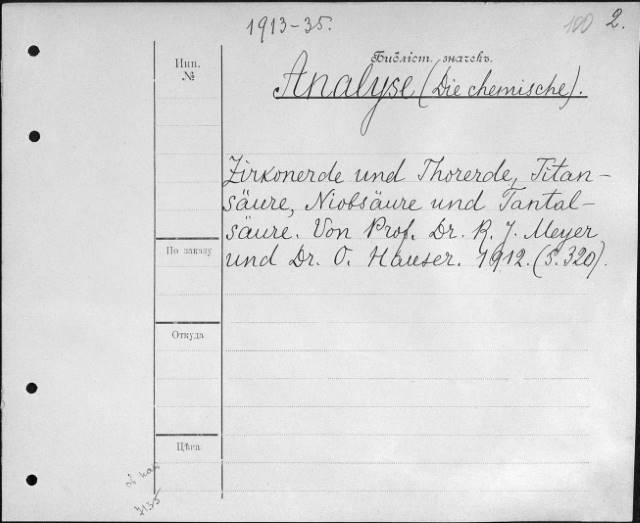 1913-35.
100 2.
Инв.
№
Библіот. значекъ.
Analyse (Die chemische).
Zirkonerde und Thorerde, Titan-
säure, Niobsäure und Tantal-
säure. Von Prof. Dr. R. J. Meyer
und Dr. O. Hauser. 1912. (S. 320).
По заказу
Откуда
Цѣна